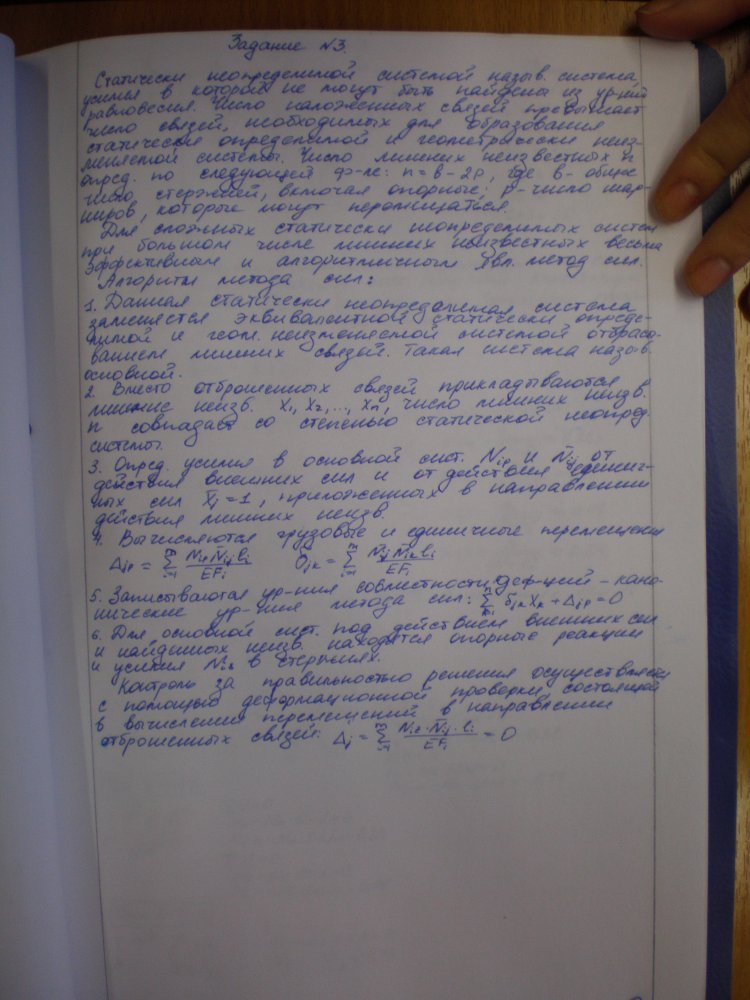 Задание №3.
Статически неопределимой системой назыв. система,
усилия в которой не могут быть найдены из ур-ний
равновесия. Число наложенных связей превышает
число связей, необходимых для образования
статически определимой и геометрически неиз-
меняемой системы. Число лишних неизвестных n
опред. по следующей ф-ле: n = в - 2р, где в - общее
число стержней, включая опорные; р - число шар-
ниров, которые могут перемещаться.
Для сложных статически неопределимых систем
при большом числе лишних неизвестных весьма
эффективным и алгоритмичным явл. метод сил.
Алгоритм метода сил:
1. Данная статически неопределимая система
заменяется эквивалентной статически опреде-
лимой и геом. неизменяемой системой отбрасы-
ванием лишних связей. Такая система назыв.
основной.
2. Вместо отброшенных связей прикладываются
лишние неизв. X₁, X₂, ..., Xn, число лишних неизв.
n совпадает со степенью статической неопред.
системы.
3. Опред. усилия в основной сист. Nip и N̄ij от
действия внешних сил и от действия единич-
ных сил X̄j = 1, приложенных в направлении
действия лишних неизв.
4. Вычисляются грузовые и единичные перемещения
Δjp = Σ Nip N̄ij li / EFi δjk = Σ N̄ij N̄ik li / EFi
5. Записываются ур-ния совместности деф-ций - кано-
нические ур-ния метода сил: Σ δjk Xk + Δjp = 0
6. Для основной сист. под действием внешних сил
и найденных неизв. находятся опорные реакции
и усилия Nix в стержнях.
Контроль за правильностью решения осуществляется
с помощью деформационной проверки, состоящей
в вычислении перемещений в направлении
отброшенных связей: Δj = Σ Nix · N̄ij · li / EFi = 0